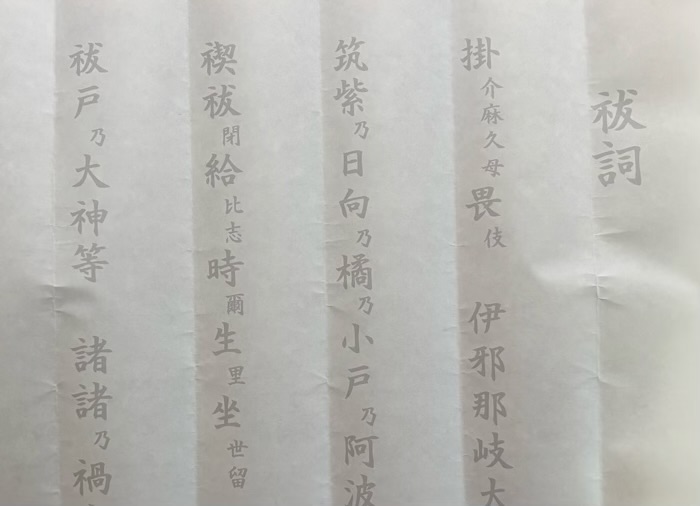 祓詞
掛介麻久母畏伎　伊邪那岐大
筑紫乃日向乃橘乃小戸乃阿波
禊祓閇給比志時爾生里坐世留
祓戸乃大神等　諸諸乃禍